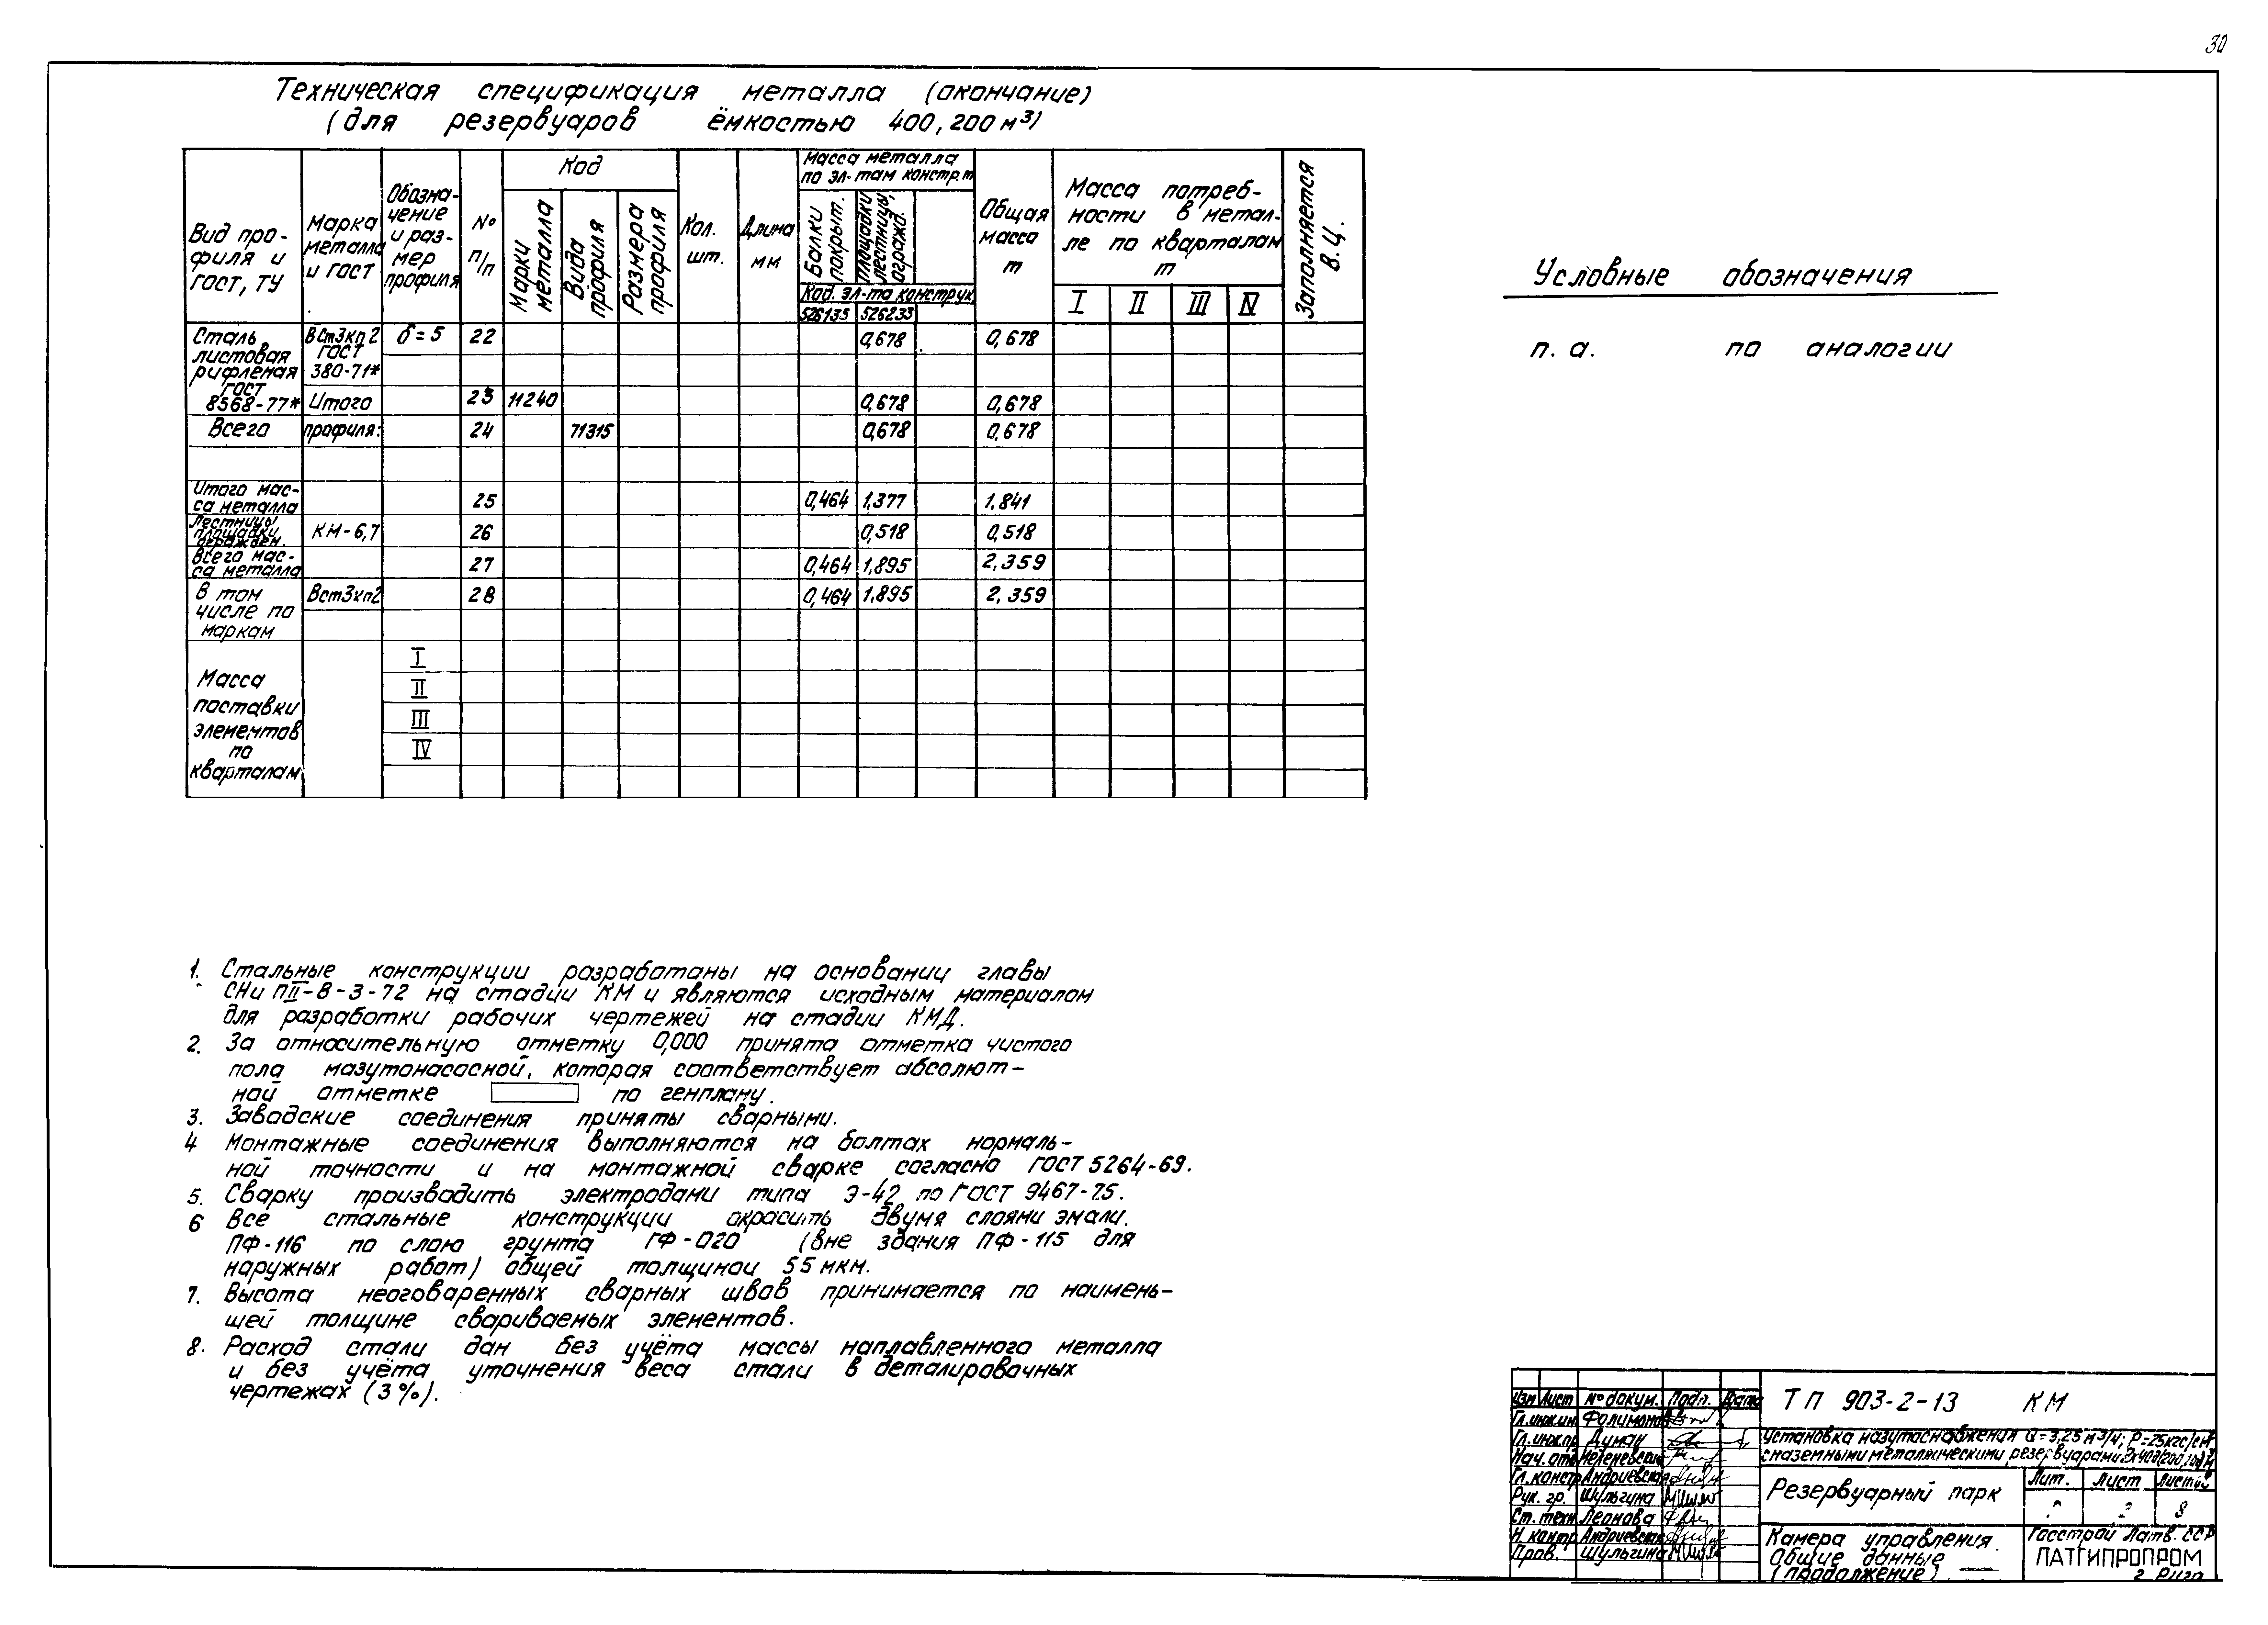 30
Техническая спецификация металла (окончание)
(для резервуаров ёмкостью 400, 200 м³)
Вид про-
филя и
гост, ту
Марка
металла
и гост
Обозна-
чение
и раз-
мер
профиля
№
п/п
Код
Марки
металла
Вида
профиля
Размера
профиля
Кол.
шт.
Длина
мм
Масса металла
по эл-там констр. т
Балки
покрыт.
площадки
лестницы,
огражд.
Код. эл-та конструк
526135 526233
Общая
масса
т
Масса потреб-
ности в метал-
ле по кварталам
т
I II III IV
Заполняется
В.Ц.
Сталь
листовая
рифленая
гост
8568-77*
ВСт3кп2
гост
380-71*
δ=5 22 0,678 0,678
Итого 23 11240 0,678 0,678
Всего профиля: 24 71315 0,678 0,678
Итого мас-
са металла 25 0,464 1,377 1,841
Лестницы
площадки
огражден. КМ-6,7 26 0,518 0,518
Всего мас-
са металла 27 0,464 1,895 2,359
В том
числе по
маркам
Вст3кп2 28 0,464 1,895 2,359
Масса
поставки
элементов
по
кварталам
I
II
III
IV
Условные обозначения
п. а. по аналогии
1. Стальные конструкции разработаны на основании главы
СНиП II-В-3-72 на стадии КМ и являются исходным материалом
для разработки рабочих чертежей на стадии КМД.
2. За относительную отметку 0,000 принята отметка чистого
пола мазутонасосной, которая соответствует абсолют-
ной отметке по генплану.
3. Заводские соединения приняты сварными.
4 Монтажные соединения выполняются на болтах нормаль-
ной точности и на монтажной сварке согласно ГОСТ 5264-69.
5. Сварку производить электродами типа Э-42 по ГОСТ 9467-75.
6 Все стальные конструкции окрасить двумя слоями эмали.
ПФ-116 по слою грунта ГФ-020 (вне здания ПФ-115 для
наружных работ) общей толщиной 55 мкм.
7. Высота неоговоренных сварных швов принимается по наимень-
шей толщине свариваемых элементов.
8. Расход стали дан без учёта массы наплавленного металла
и без учёта уточнения веса стали в деталировочных
чертежах (3%).
Изм Лист № докум. Подп. Дата
Гл.инж.ин. Филимонов
Гл.инж.пр Думан
Нач. отд
Гл.констр Андриевская
Рук. гр. Шульгина
Ст. техн Леонова
Н. контр Андриевская
Пров. Шульгина
ТП 903-2-13 КМ
Установка мазутоснабжения Q=3,25 м³/ч; P=25кгс/см²
с наземными металлическими резервуарами 2х400(200,100)м³
Резервуарный парк
Лит. Лист Листов
8
Камера управления.
Общие данные
(продолжение)
Госстрой Латв. ССР
ЛАТГИПРОПРОМ
г. Рига